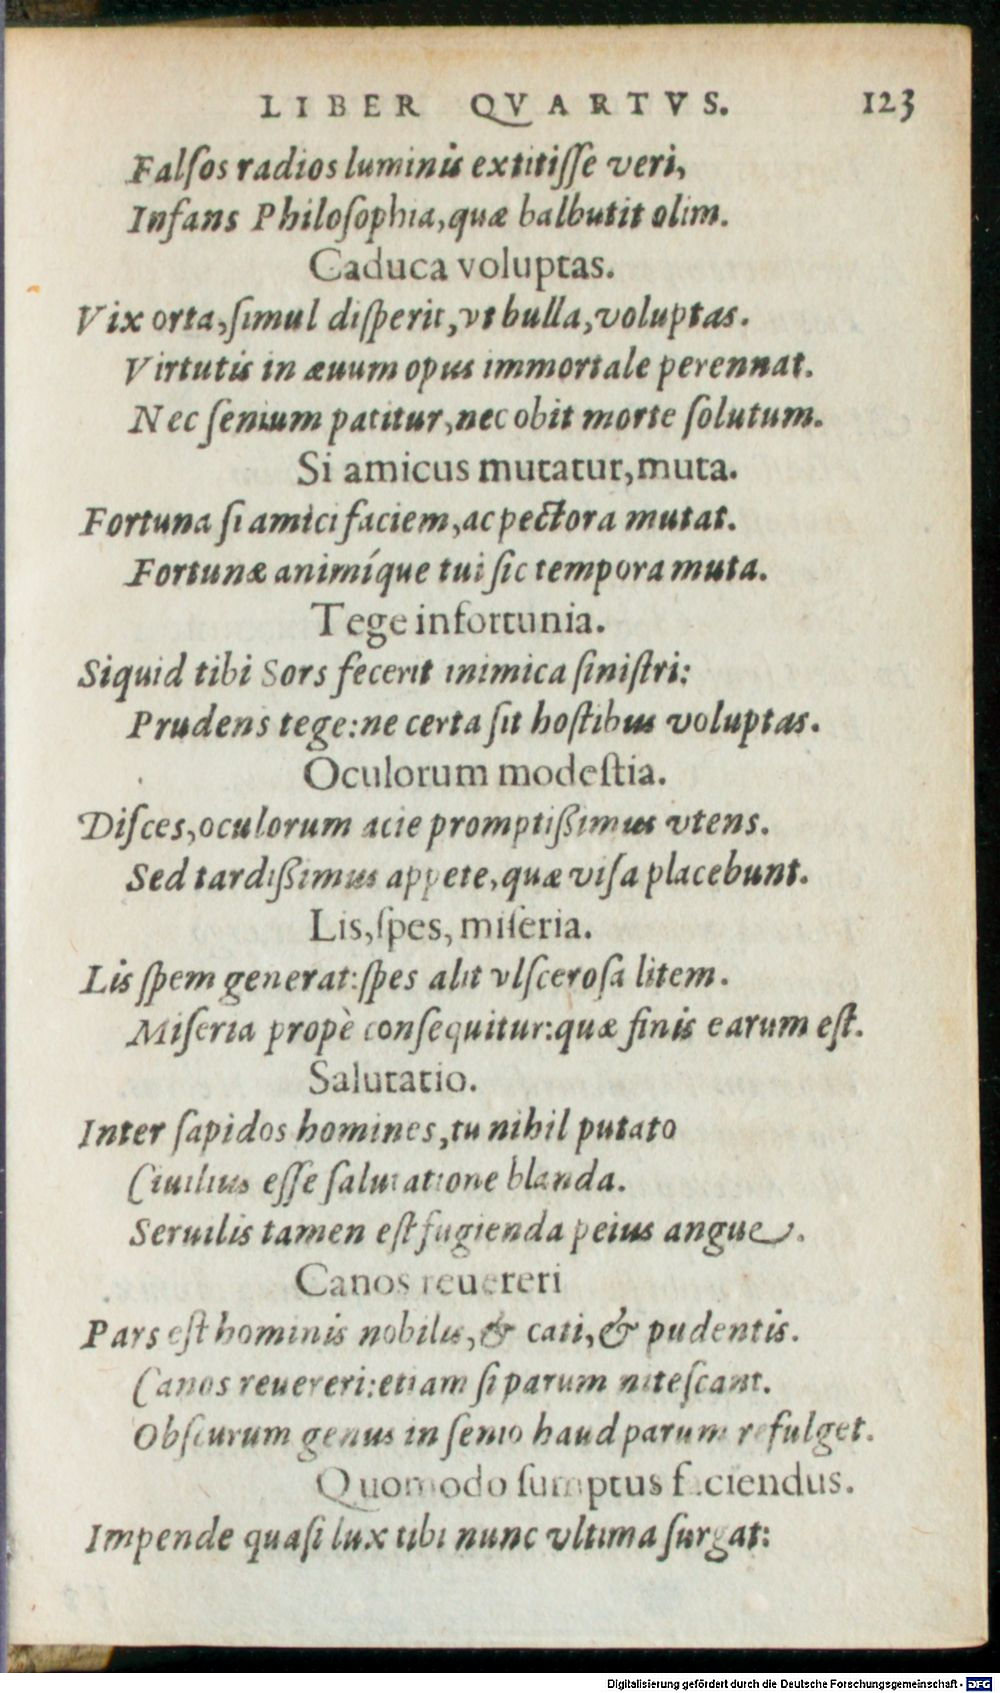 LIBER QVARTVS. 123
Falſos radios luminis extitiſſe veri,
Infans Philoſophia, quæ balbutit olim.
Caduca voluptas.
Vix orta, ſimul diſperit, vt bulla, voluptas.
Virtutis in æuum opus immortale perennat.
Nec ſenium patitur, nec obit morte ſolutum.
Si amicus mutatur, muta.
Fortuna ſi amici faciem, ac pectora mutat.
Fortunæ animíque tui ſic tempora muta.
Tege infortunia.
Siquid tibi Sors fecerit inimica ſiniſtri:
Prudens tege: ne certa ſit hoſtibus voluptas.
Oculorum modeſtia.
Diſces, oculorum acie promptißimus vtens.
Sed tardißimus appete, quæ viſa placebunt.
Lis, ſpes, miſeria.
Lis ſpem generat: ſpes alit vlſceroſa litem.
Miſeria propè conſequitur: quæ finis earum eſt.
Salutatio.
Inter ſapidos homines, tu nihil putato
Ciuilius eſſe ſalutatione blanda.
Seruilis tamen eſt fugienda peius angue.
Canos reuereri
Pars eſt hominis nobilis, & cati, & pudentis.
Canos reuereri: etiam ſi parum niteſcant.
Obſcurum genus in ſenio haud parum refulget.
Quomodo ſumptus faciendus.
Impende quaſi lux tibi nunc vltima ſurgat:
Digitalisierung gefördert durch die Deutsche Forschungsgemeinschaft - DFG